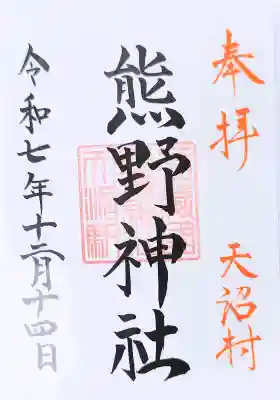 奉拝
天沼村
熊野神社
令和七年十二月十四日